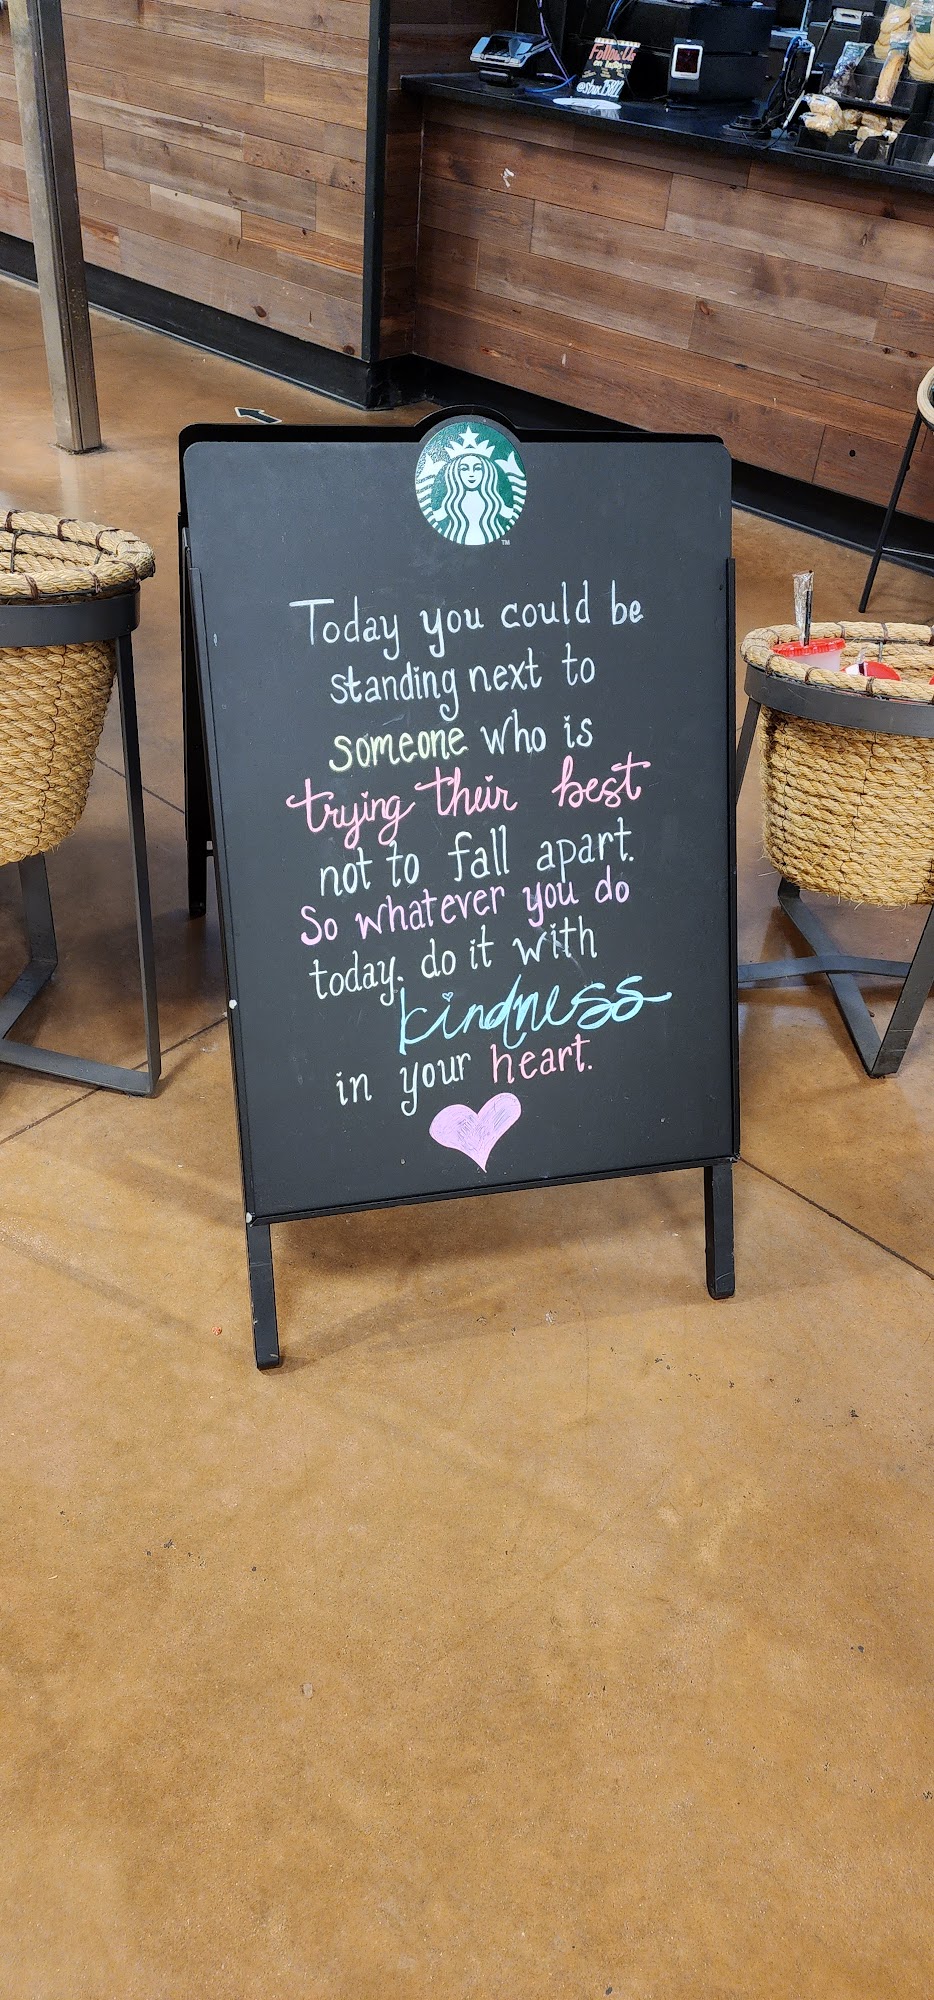 Follow Us
Today you could be
standing next to
someone who is
trying their best
not to fall apart.
So whatever you do
today. do it with
kindness
in your heart.
TM